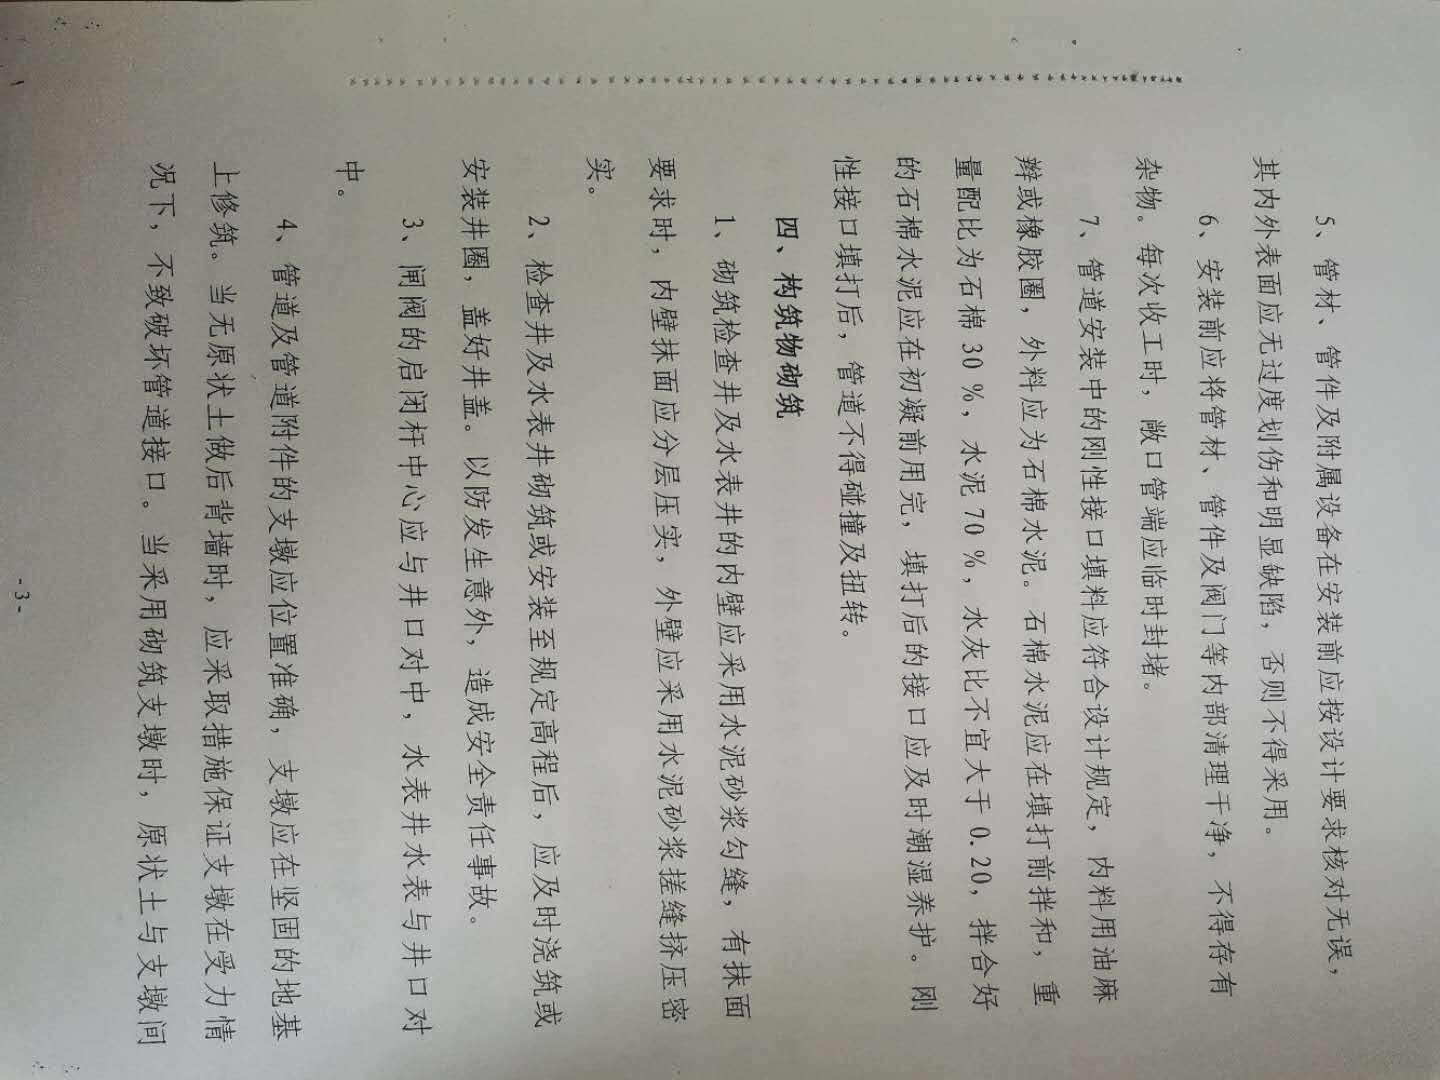 5、管材、管件及附属设备在安装前应按设计要求核对无误，
其内外表面应无过度划伤和明显缺陷，否则不得采用。
6、安装前应将管材、管件及阀门等内部清理干净，不得存有
杂物。每次收工时，敞口管端应临时封堵。
7、管道安装中的刚性接口填料应符合设计规定，内料用油麻
辫或橡胶圈，外料应为石棉水泥。石棉水泥应在填打前拌和，重
量配比为石棉30％，水泥70％，水灰比不宜大于0.20，拌合好
的石棉水泥应在初凝前用完，填打后的接口应及时潮湿养护。刚
性接口填打后，管道不得碰撞及扭转。
四、构筑物砌筑
1、砌筑检查井及水表井的内壁应采用水泥砂浆勾缝，有抹面
要求时，内壁抹面应分层压实，外壁应采用水泥砂浆搓缝挤压密
实。
2、检查井及水表井砌筑或安装至规定高程后，应及时浇筑或
安装井圈，盖好井盖。以防发生意外，造成安全责任事故。
3、闸阀的启闭杆中心应与井口对中，水表井水表与井口对
中。
4、管道及管道附件的支墩应位置准确，支墩应在坚固的地基
上修筑。当无原状土做后背墙时，应采取措施保证支墩在受力情
况下，不致破坏管道接口。当采用砌筑支墩时，原状土与支墩间
-3-